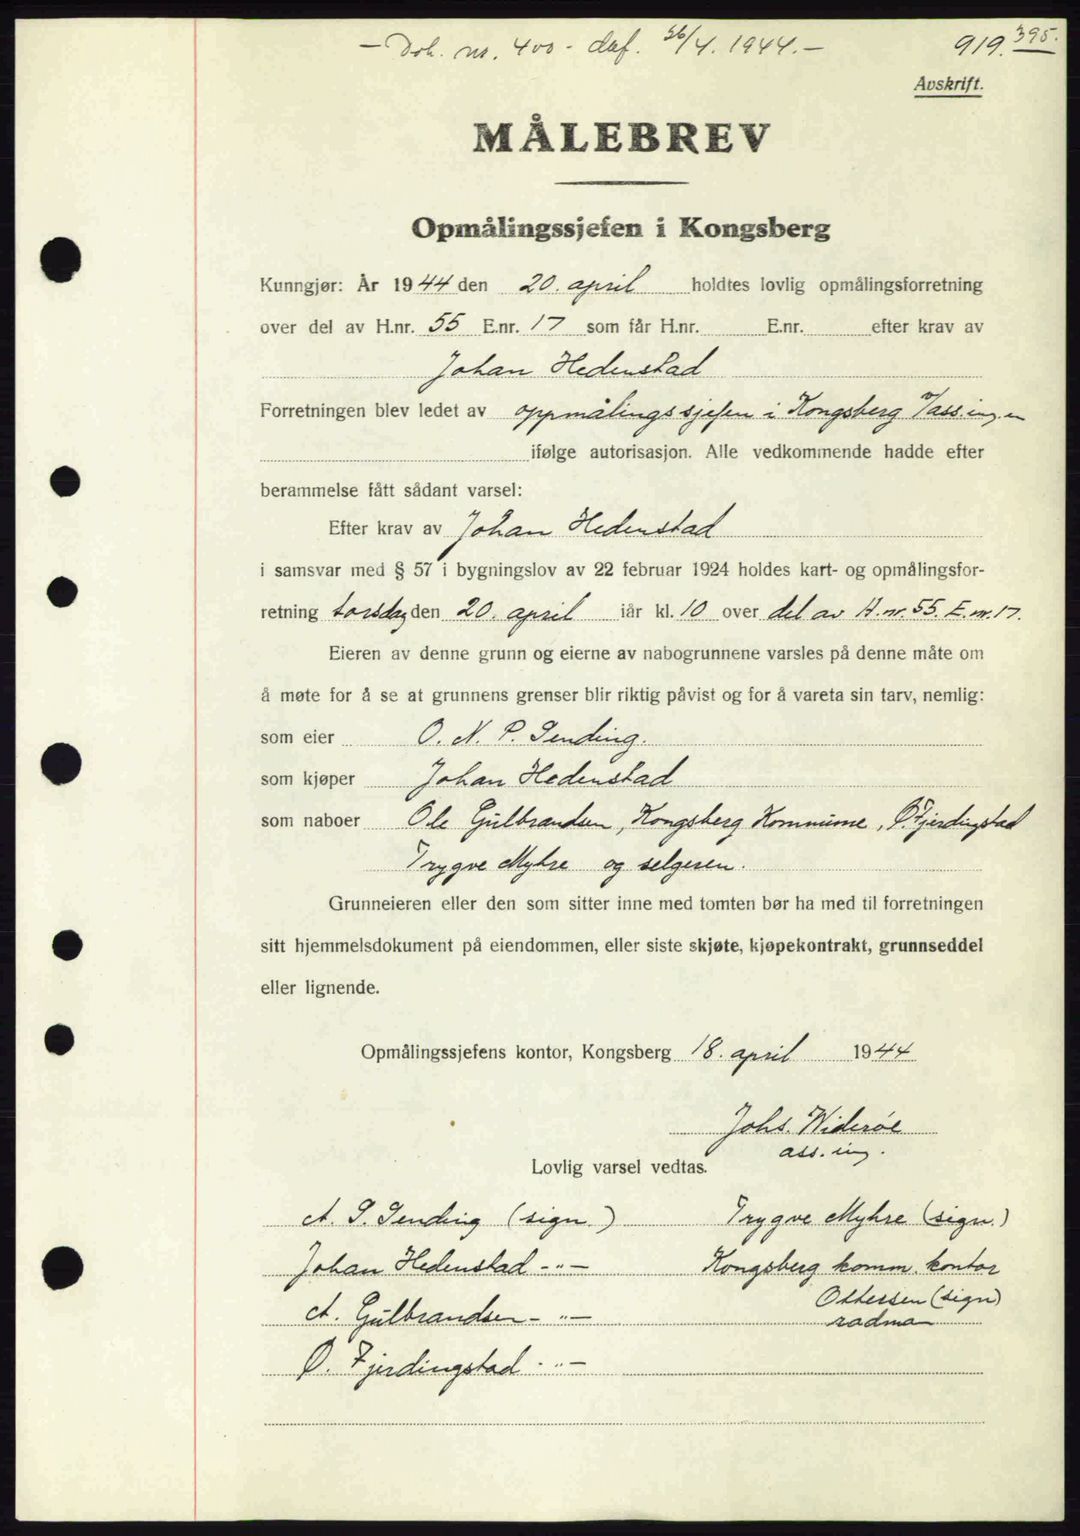 — Dok. nr. 400 - daf. 26/4. 1944. —
919. 395.
Avskrift.
MÅLEBREV
Opmålingssjefen i Kongsberg
Kunngjør: År 1944 den 20. april holdtes lovlig opmålingsforretning
over del av H.nr. 55 E.nr. 17 som får H.nr. E.nr. efter krav av
Johan Hedenstad
Forretningen blev ledet av oppmålingssjefen i Kongsberg v/ass.ing.en
ifølge autorisasjon. Alle vedkommende hadde efter
berammelse fått sådant varsel:
Efter krav av Johan Hedenstad
i samsvar med § 57 i bygningslov av 22 februar 1924 holdes kart- og opmålingsfor-
retning torsdag den 20. april iår kl. 10 over del av H.nr. 55. E.nr. 17.
Eieren av denne grunn og eierne av nabogrunnene varsles på denne måte om
å møte for å se at grunnens grenser blir riktig påvist og for å vareta sin tarv, nemlig:
som eier O. N. P. Sending.
som kjøper Johan Hedenstad
som naboer Ole Gulbrandsen, Kongsberg Kommune, Ø. Fjerdingstad
Trygve Myhre og selgeren.
Grunneieren eller den som sitter inne med tomten bør ha med til forretningen
sitt hjemmelsdokument på eiendommen, eller siste skjøte, kjøpekontrakt, grunnseddel
eller lignende.
Opmålingssjefens kontor, Kongsberg 18. april 1944
Johs. Widerøe
ass. ing.
Lovlig varsel vedtas.
A. S. Sending (sign.) Trygve Myhre (sign.)
Johan Hedenstad -"- Kongsberg komm. kontor
Ottessen (sign)
A. Gulbrandsen -"- radman
Ø. Fjerdingstad -"-